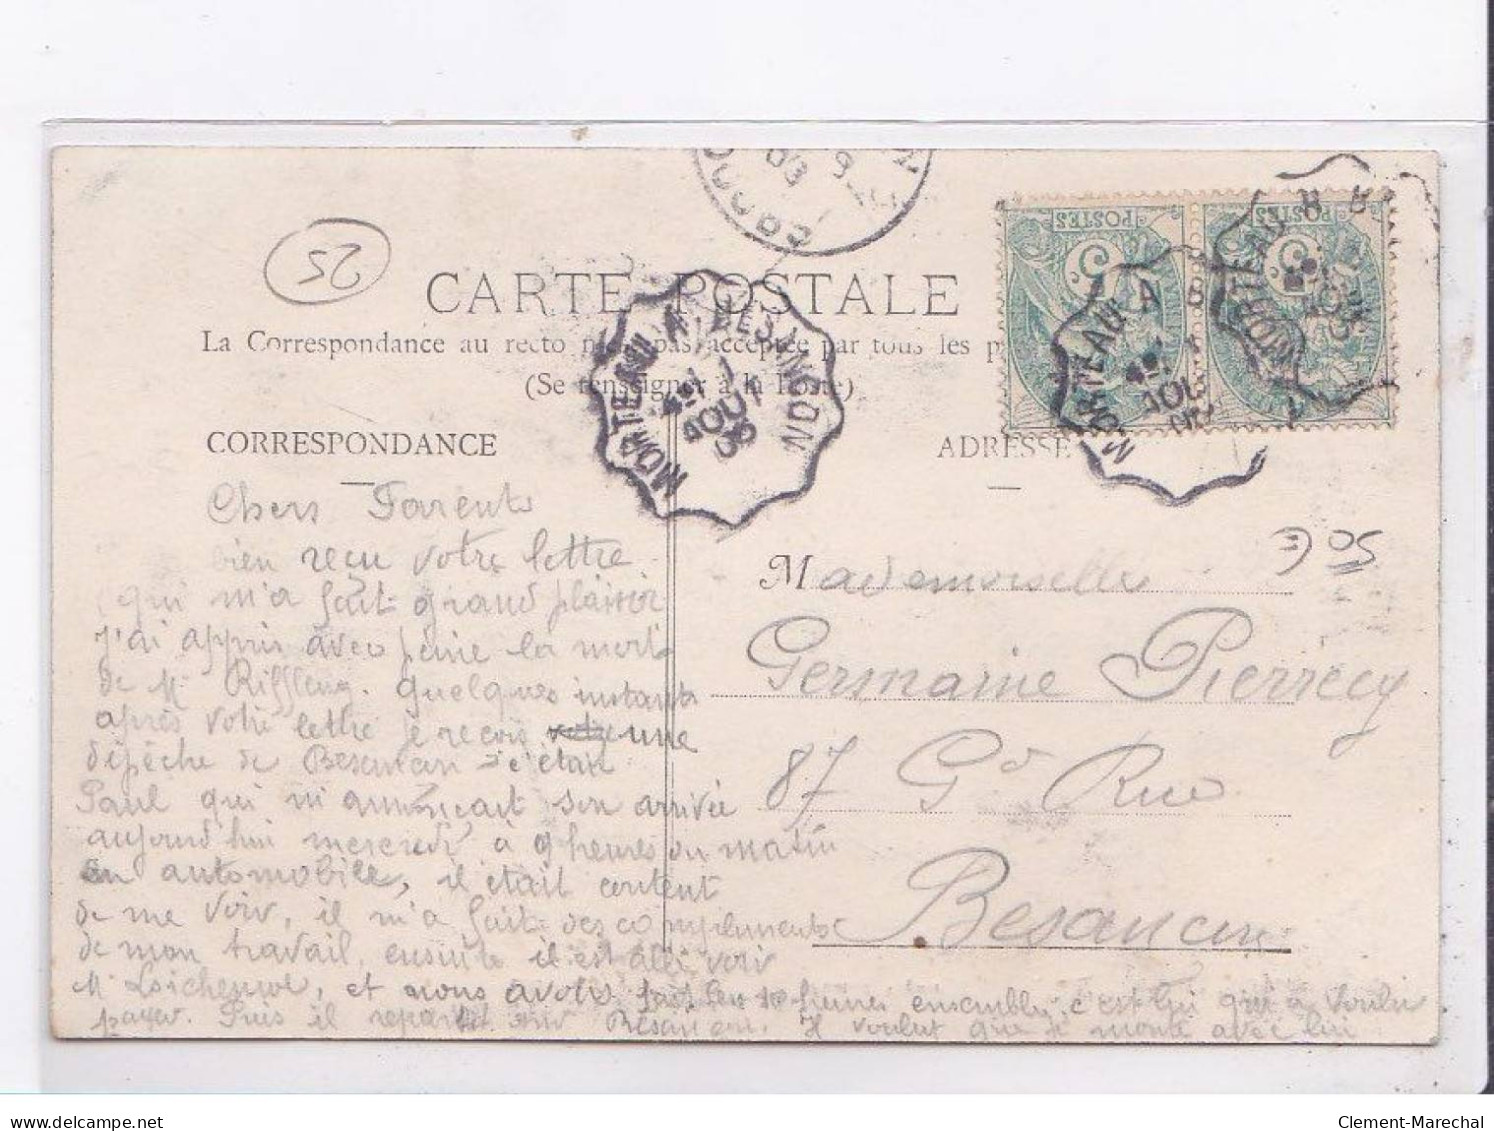 25
CARTE POSTALE
La Correspondance au recto n'est pas acceptée par tous les p
(Se renseigner à la Poste)
CORRESPONDANCE
ADRESSE
MORTEAU A BESANÇON
AOUT
MORTEAU A B
AOU
MORTEAU
DOUBS
POSTES
5
POSTES
5
Chers Parents
bien reçu votre lettre
qui m'a fait grand plaisir
j'ai appris avec peine la mort
de Mr Riffling. Quelques instants
après votre lettre je reçois une
dépêche de Besançon c'était
Paul qui m'annonçait son arrivée
aujourd'hui mercredi à 9 heures du matin
en automobile, il était content
de me voir, il m'a fait des compliments
de mon travail, ensuite il est allé voir
Mr et nous avons fait les 10 heures ensemble, c'est lui qui a voulu
payer. Puis il repartit sur Besançon. Il voulut que je monte avec lui
Mademoiselle
Germaine Pierrecy
87 Gde Rue
Besançon
delcampe.net
Clement-Marechal